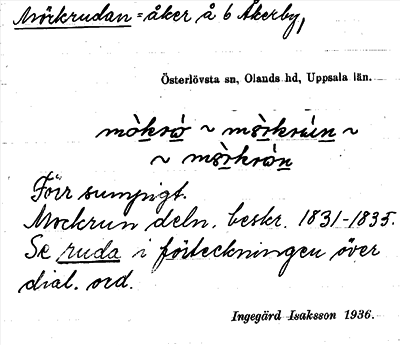 Mörkrudan = åker å 6 Åkerby,
Österlövsta sn, Olands hd, Uppsala län.
mòkrú ~ mörkrúun ~
~ mörkrún
Förr sumpigt.
Mockrun deln. beskr. 1831-1835.
Se ruda i förteckningen över
dial. ord.
Ingegärd Isaksson 1936.